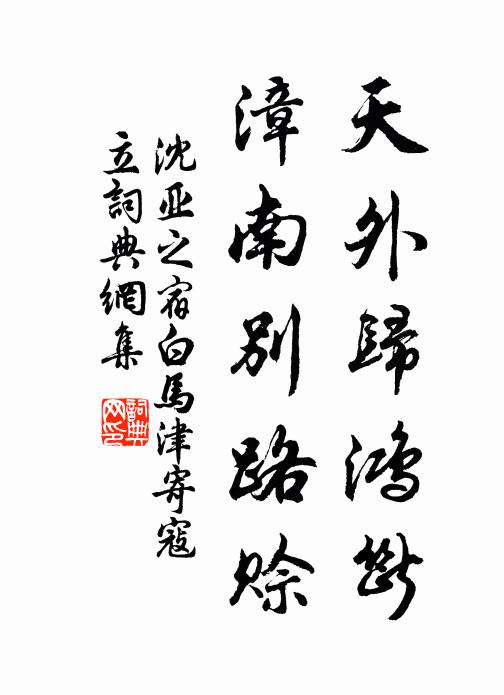 天外歸鴻斷
漳南別路賒
沈亚之宿白馬津寄寇
立詞典網集
詞典网印